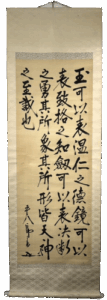 玉可以表温仁之德鏡可以
表致格之知劔可以表決断
之勇其所象其所形皆天神
之至誠也